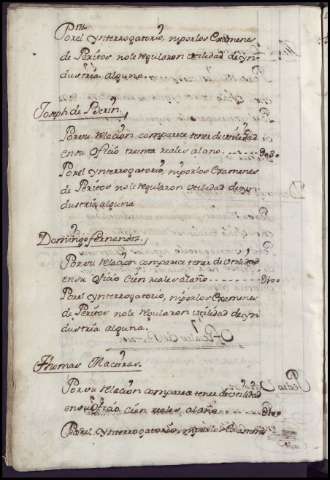 Por el Ynterrogatorio, ni por los Exsamenes
de Peritos no le regularon utilidad de Yn
dustria alguna.
Joseph de Perin,
Por su relacion comparece tener de utilidad
en su oficio treinta reales al año
Por el Ynterrogatorio, ni por los Exsamenes
de Peritos no le regularon utilidad de yn
dustria alguna
Domingo fernandez,
Por su relacion comparece tener de utilidad
en su oficio cien reales al año
Por el Ynterrogatorio, ni por los Exsamenes
de Peritos no le regularon utilidad de yn
dustria alguna.
Thomas Maceiras
Por su relacion comparece tener de utilidad
en su oficio cien reales al año
Por el Ynterrogatorio, ni por los Exsamenes